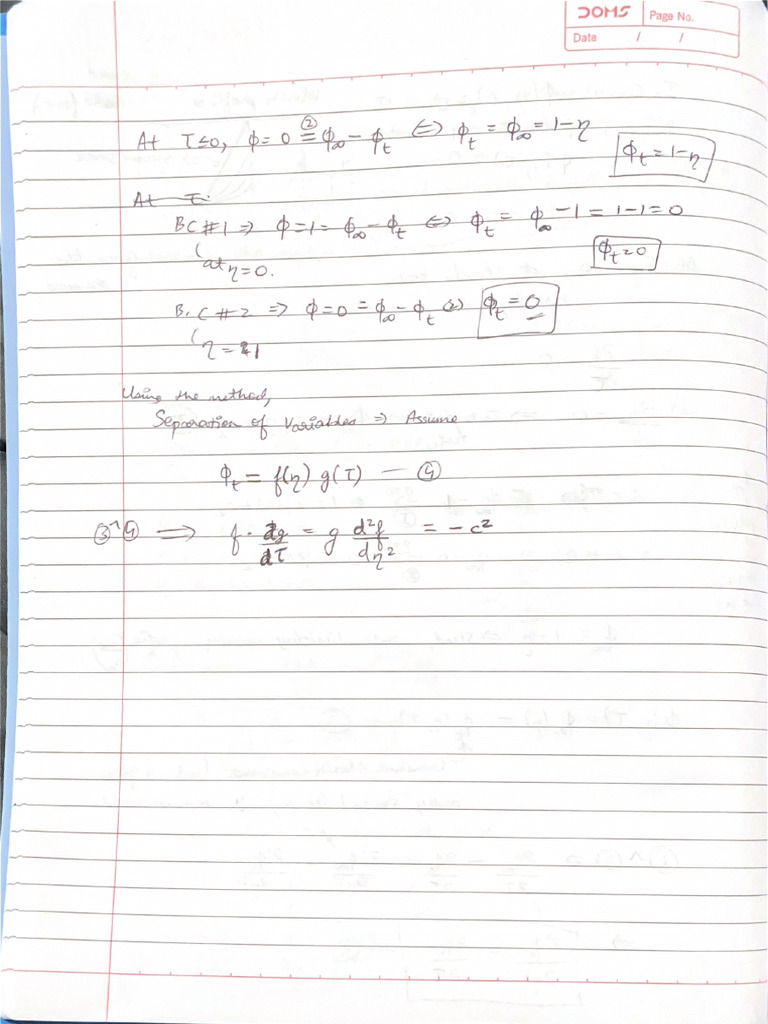 DOMS Page No.
Date / /
At τ≤0, ϕ=0 ②= ϕ∞ − ϕt ⇔ ϕt = ϕ∞ = 1−η
ϕt = 1−η
At τ
BC #1 ⇒ ϕ=1= ϕ∞ − ϕt ⇔ ϕt = ϕ∞ −1 = 1−1=0
at η=0.
ϕt=0
B.C #2 ⇒ ϕ=0 = ϕ∞ − ϕt ⇔ ϕt = 0
η = 1
Using the method,
Separation of Variables ⇒ Assume
ϕt = f(η) g(τ) — ④
③^④ ⟹ f · dg/dτ = g d²f/dη² = −c²